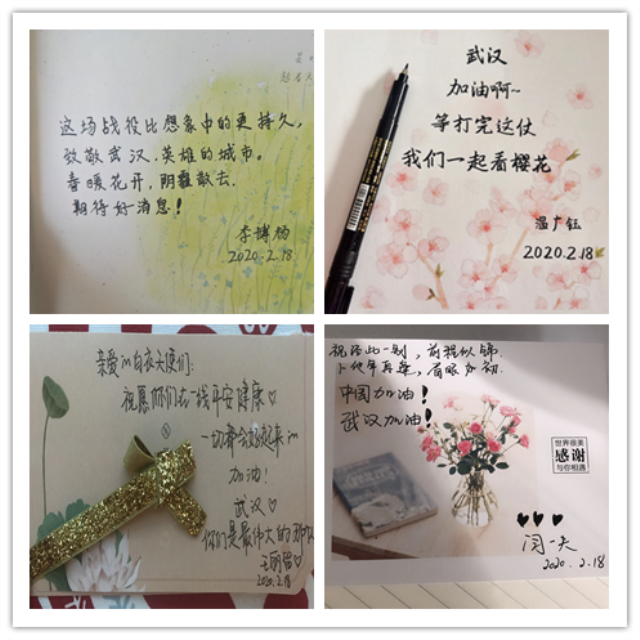 这场战役比想象中的更持久,
致敬武汉,英雄的城市。
春暖花开,阴霾散去.
期待好消息!
李博杨
2020.2.18
武汉
加油啊~
等打完这仗
我们一起看樱花
温广钰
2020.2.18
亲爱的白衣天使们:
祝愿你们在一线平安健康♡
一切都会好起来的
加油!
武汉♡
你们是最伟大的
2020.2.18
祝活此一别,前程似锦.
卜他年再聚,眉眼如初.
中国加油!
武汉加油!
世界很美
感谢
与你相遇
闫一夫
2020.2.18